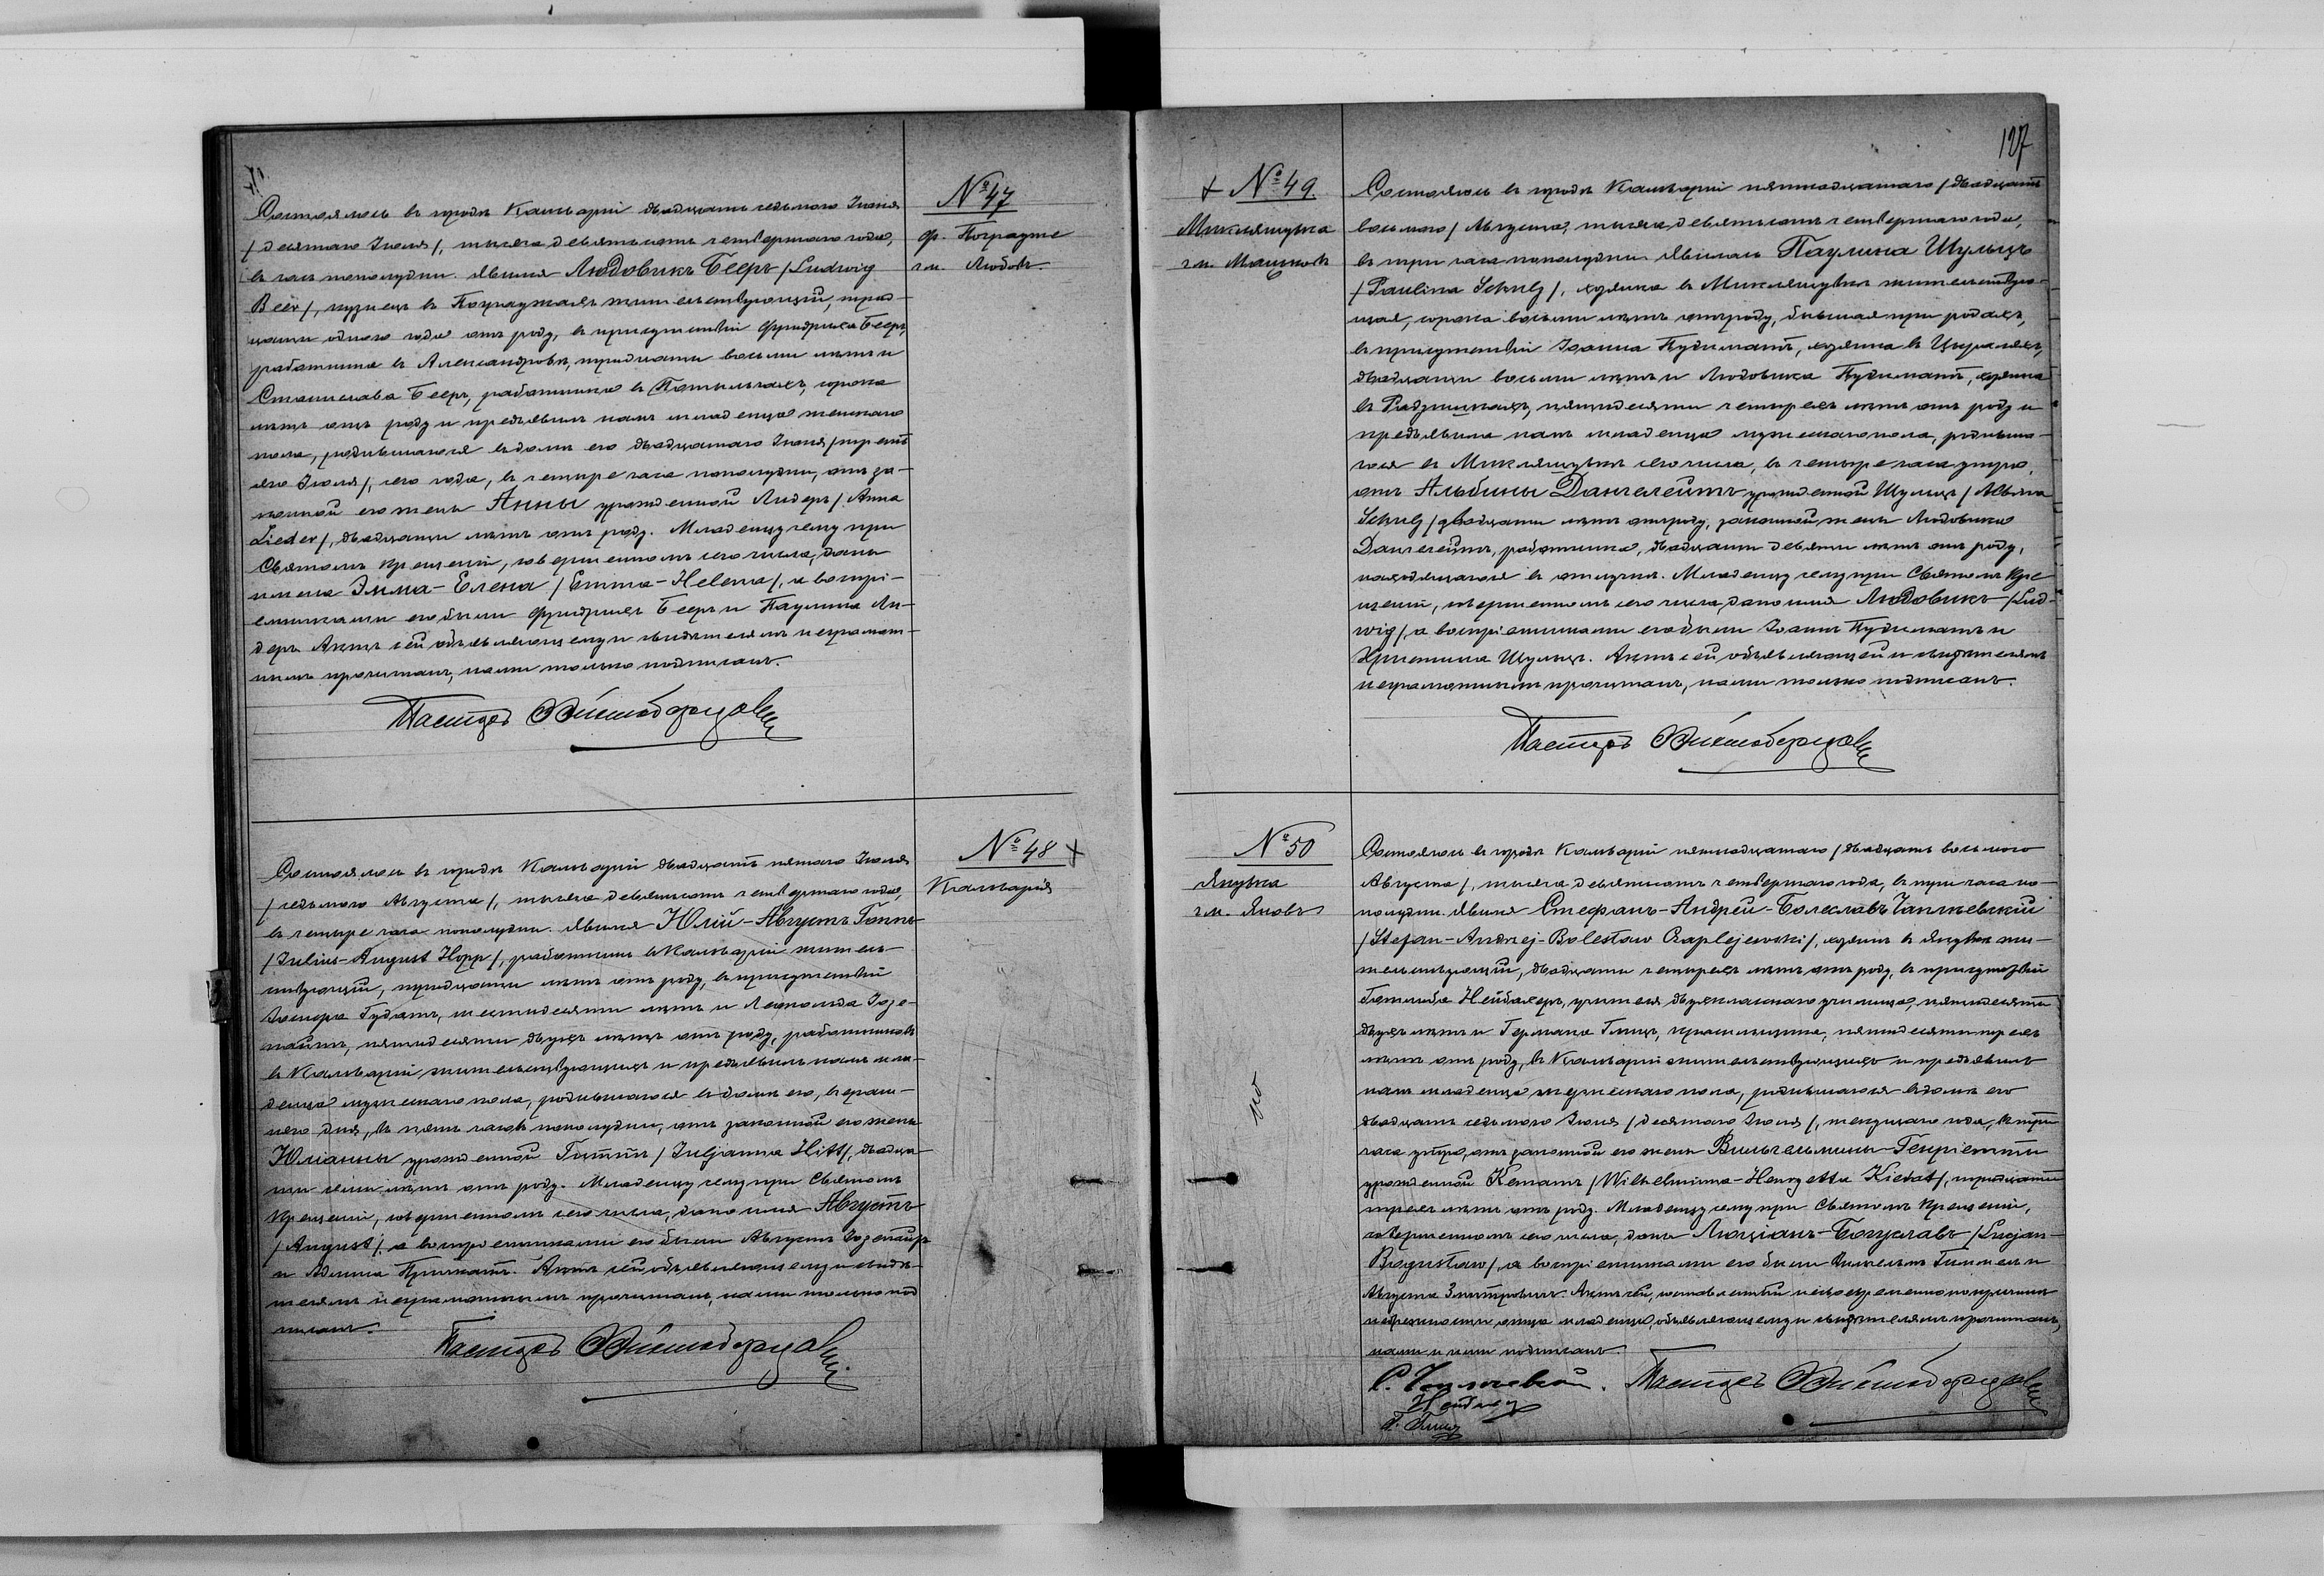 Состоялось въ городѣ Кальваріи двадцать седьмого Іюня
/ десятаго Іюля /, тысяча девятьсотъ четвертаго года,
въ часъ пополудни. Явился Людовикъ Бееръ / Ludwig
Beer /, кузнецъ въ жительствующій, трид-
цати одного года отъ роду, въ присутствіи Фридриха Бееръ,
работника въ Александровѣ, тридцати восьми лѣтъ и
Станислава Бееръ, работника въ сорока
лѣтъ отъ роду и предъявилъ намъ младенца женскаго
пола, родившагося въ домѣ его двадцатаго Іюня / треть-
яго Іюля /, сего года, въ четыре часа пополудни, отъ за-
конной его жены Анны урожденной Лидеръ / Anna
Lieder /, двадцати лѣтъ отъ роду. Младенцу сему при
Святомъ Крещеніи, совершенномъ сего числа, даны
имена Эмма-Елена / Emma-Helena /, а воспрі-
емниками его были Фридрихъ Бееръ и Паулина Ли-
деръ. Актъ сей объявляющему и свидѣтелямъ неграмот-
нымъ прочитанъ, нами только подписанъ.
Пасторъ
№ 47
гм. Любовъ.
Состоялось въ городѣ Кальваріи двадцать пятаго Іюля
/ седьмого Августа /, тысяча девятьсотъ четвертаго года,
въ четыре часа пополудни. Явился Юлій-Августъ Гоппъ
/ Julius-August Hopp /, работникъ въ Кальваріи житель-
ствующій, тридцати лѣтъ отъ роду, въ присутствіи
Іосифа Гудатъ, шестидесяти лѣтъ и Леопольда Іозе-
пайтъ, пятидесяти двухъ лѣтъ отъ роду, работниковъ
въ Кальваріи жительствующихъ и предъявилъ намъ мла-
денца мужескаго пола, родившагося въ домѣ его, вчераш-
няго дня, въ пять часовъ пополудни, отъ законной его жены
Юліанны урожденной Гиттъ / Juljanna Hitt /, двадца-
ти семи лѣтъ отъ роду. Младенцу сему при Святомъ
Крещеніи, совершенномъ сего числа, дано имя Августъ
/ August /, а воспріемниками его были Августъ
и Актъ сей объявляющему и свидѣ-
телямъ неграмотнымъ прочитанъ, нами только под-
писанъ.
Пасторъ
№ 48 +
Кальварія
127
+ № 49
Миклашувка
Состоялось въ городѣ Кальваріи пятнадцатаго / двадцать
восьмого / Августа, тысяча девятьсотъ четвертаго года,
въ три часа пополудни. Явилась Паулина Шульцъ
/ Paulina Schulz /, хозяйка въ Миклашувкѣ жительствую-
щая, сорока восьми лѣтъ отъ роду, бывшая при родахъ,
въ присутствіи Іоанна хозяина въ
двадцати восьми лѣтъ и Людовика хозяина
въ пятидесяти четырехъ лѣтъ отъ роду и
предъявила намъ младенца мужескаго пола, родивша-
гося въ Миклашувкѣ сего числа, въ четыре часа утра,
отъ Альбины Дангелейтъ урожденной Шульцъ / Albina
Schulz / двадцати лѣтъ отъ роду, законной жены Людовика
Дангелейтъ, работника, двадцати девяти лѣтъ отъ роду,
находящагося въ отлучкѣ. Младенцу сему при Святомъ Кре-
щеніи, совершенномъ сего числа, дано имя Людовикъ / Lud-
wig /, а воспріемниками его были Іоаннъ и
Христина Шульцъ. Актъ сей объявляющей и свидѣтелямъ
неграмотнымъ прочитанъ, нами только подписанъ.
Пасторъ
№ 50
Янувка
гм. Яновъ
Состоялось въ городѣ Кальваріи пятнадцатаго / двадцать восьмого
Августа /, тысяча девятьсотъ четвертаго года, въ три часа по-
полудни. Явился Стефанъ-Андрей-Болеславъ Чаплеевскій
/ Stefan-Andrzej-Bolesław Czaplejewski /, хозяинъ въ Янувкѣ жи-
тельствующій, двадцати четырехъ лѣтъ отъ роду, въ присутствіи
Готлиба учителя двухкласснаго училища, пятидесяти
двухъ лѣтъ и Германа пятидесяти трехъ
лѣтъ отъ роду, въ Кальваріи жительствующихъ и предъявилъ
намъ младенца мужескаго пола, родившагося въ домѣ его
двадцать седьмого Іюня / десятаго Іюля /, текущаго года, въ три
часа утра, отъ законной его жены Вильгельмины-Генріетты
урожденной / Wilhelmina-Henryetta Kiedat /, тридцати
трехъ лѣтъ отъ роду. Младенцу сему при Святомъ Крещеніи,
совершенномъ сего числа, даны Люціанъ-Богуславъ / Lucjan-
Bogusław /, а воспріемниками его были и
Августа Актъ сей, составленный несвоевременно по причинѣ
небрежности отца младенца, объявляющему и свидѣтелямъ прочитанъ,
нами и ними подписанъ.
Пасторъ